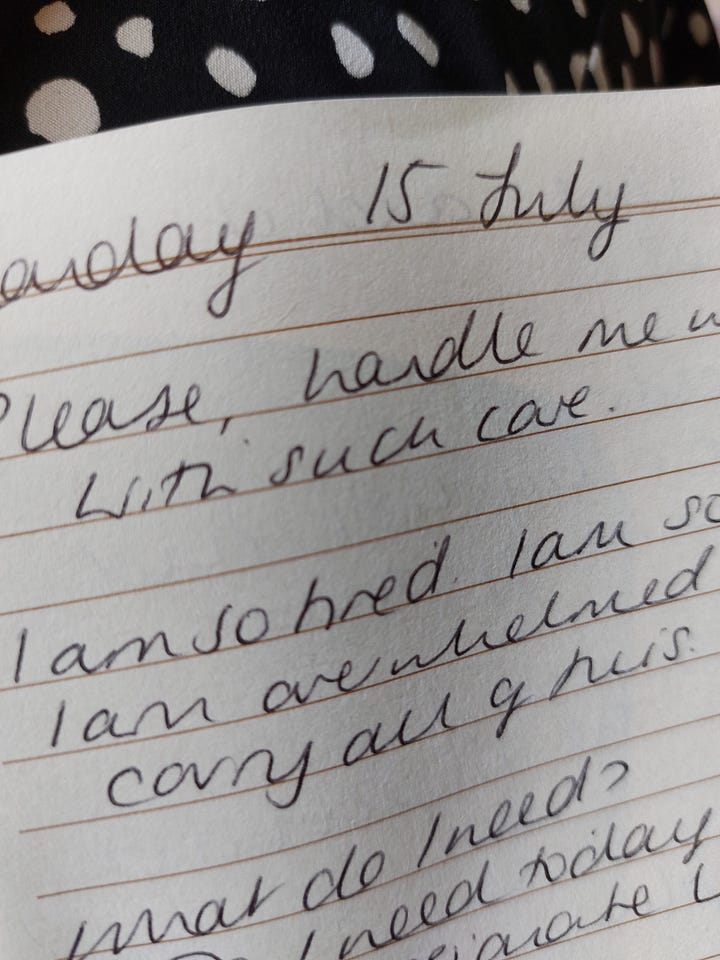 15 July
Please, handle me
with such care.
I am so tired. I am so
I am overwhelmed
carry all of this.
What do I need?
I need today